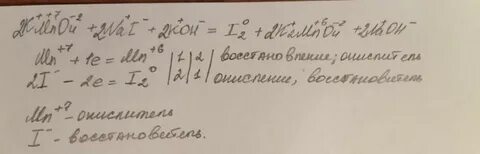 2K⁺Mn⁺⁷O₄⁻² + 2Na⁺I⁻ + 2KOH⁻ = I₂⁰ + 2K₂Mn⁺⁶O₄⁻² + 2NaOH⁻
Mn⁺⁷ + 1e = Mn⁺⁶ |1|2| восстановление; окислитель
2I⁻ - 2e = I₂⁰ |2|1| окисление, восстановитель
Mn⁺⁷ - окислитель
I⁻ - восстановитель.